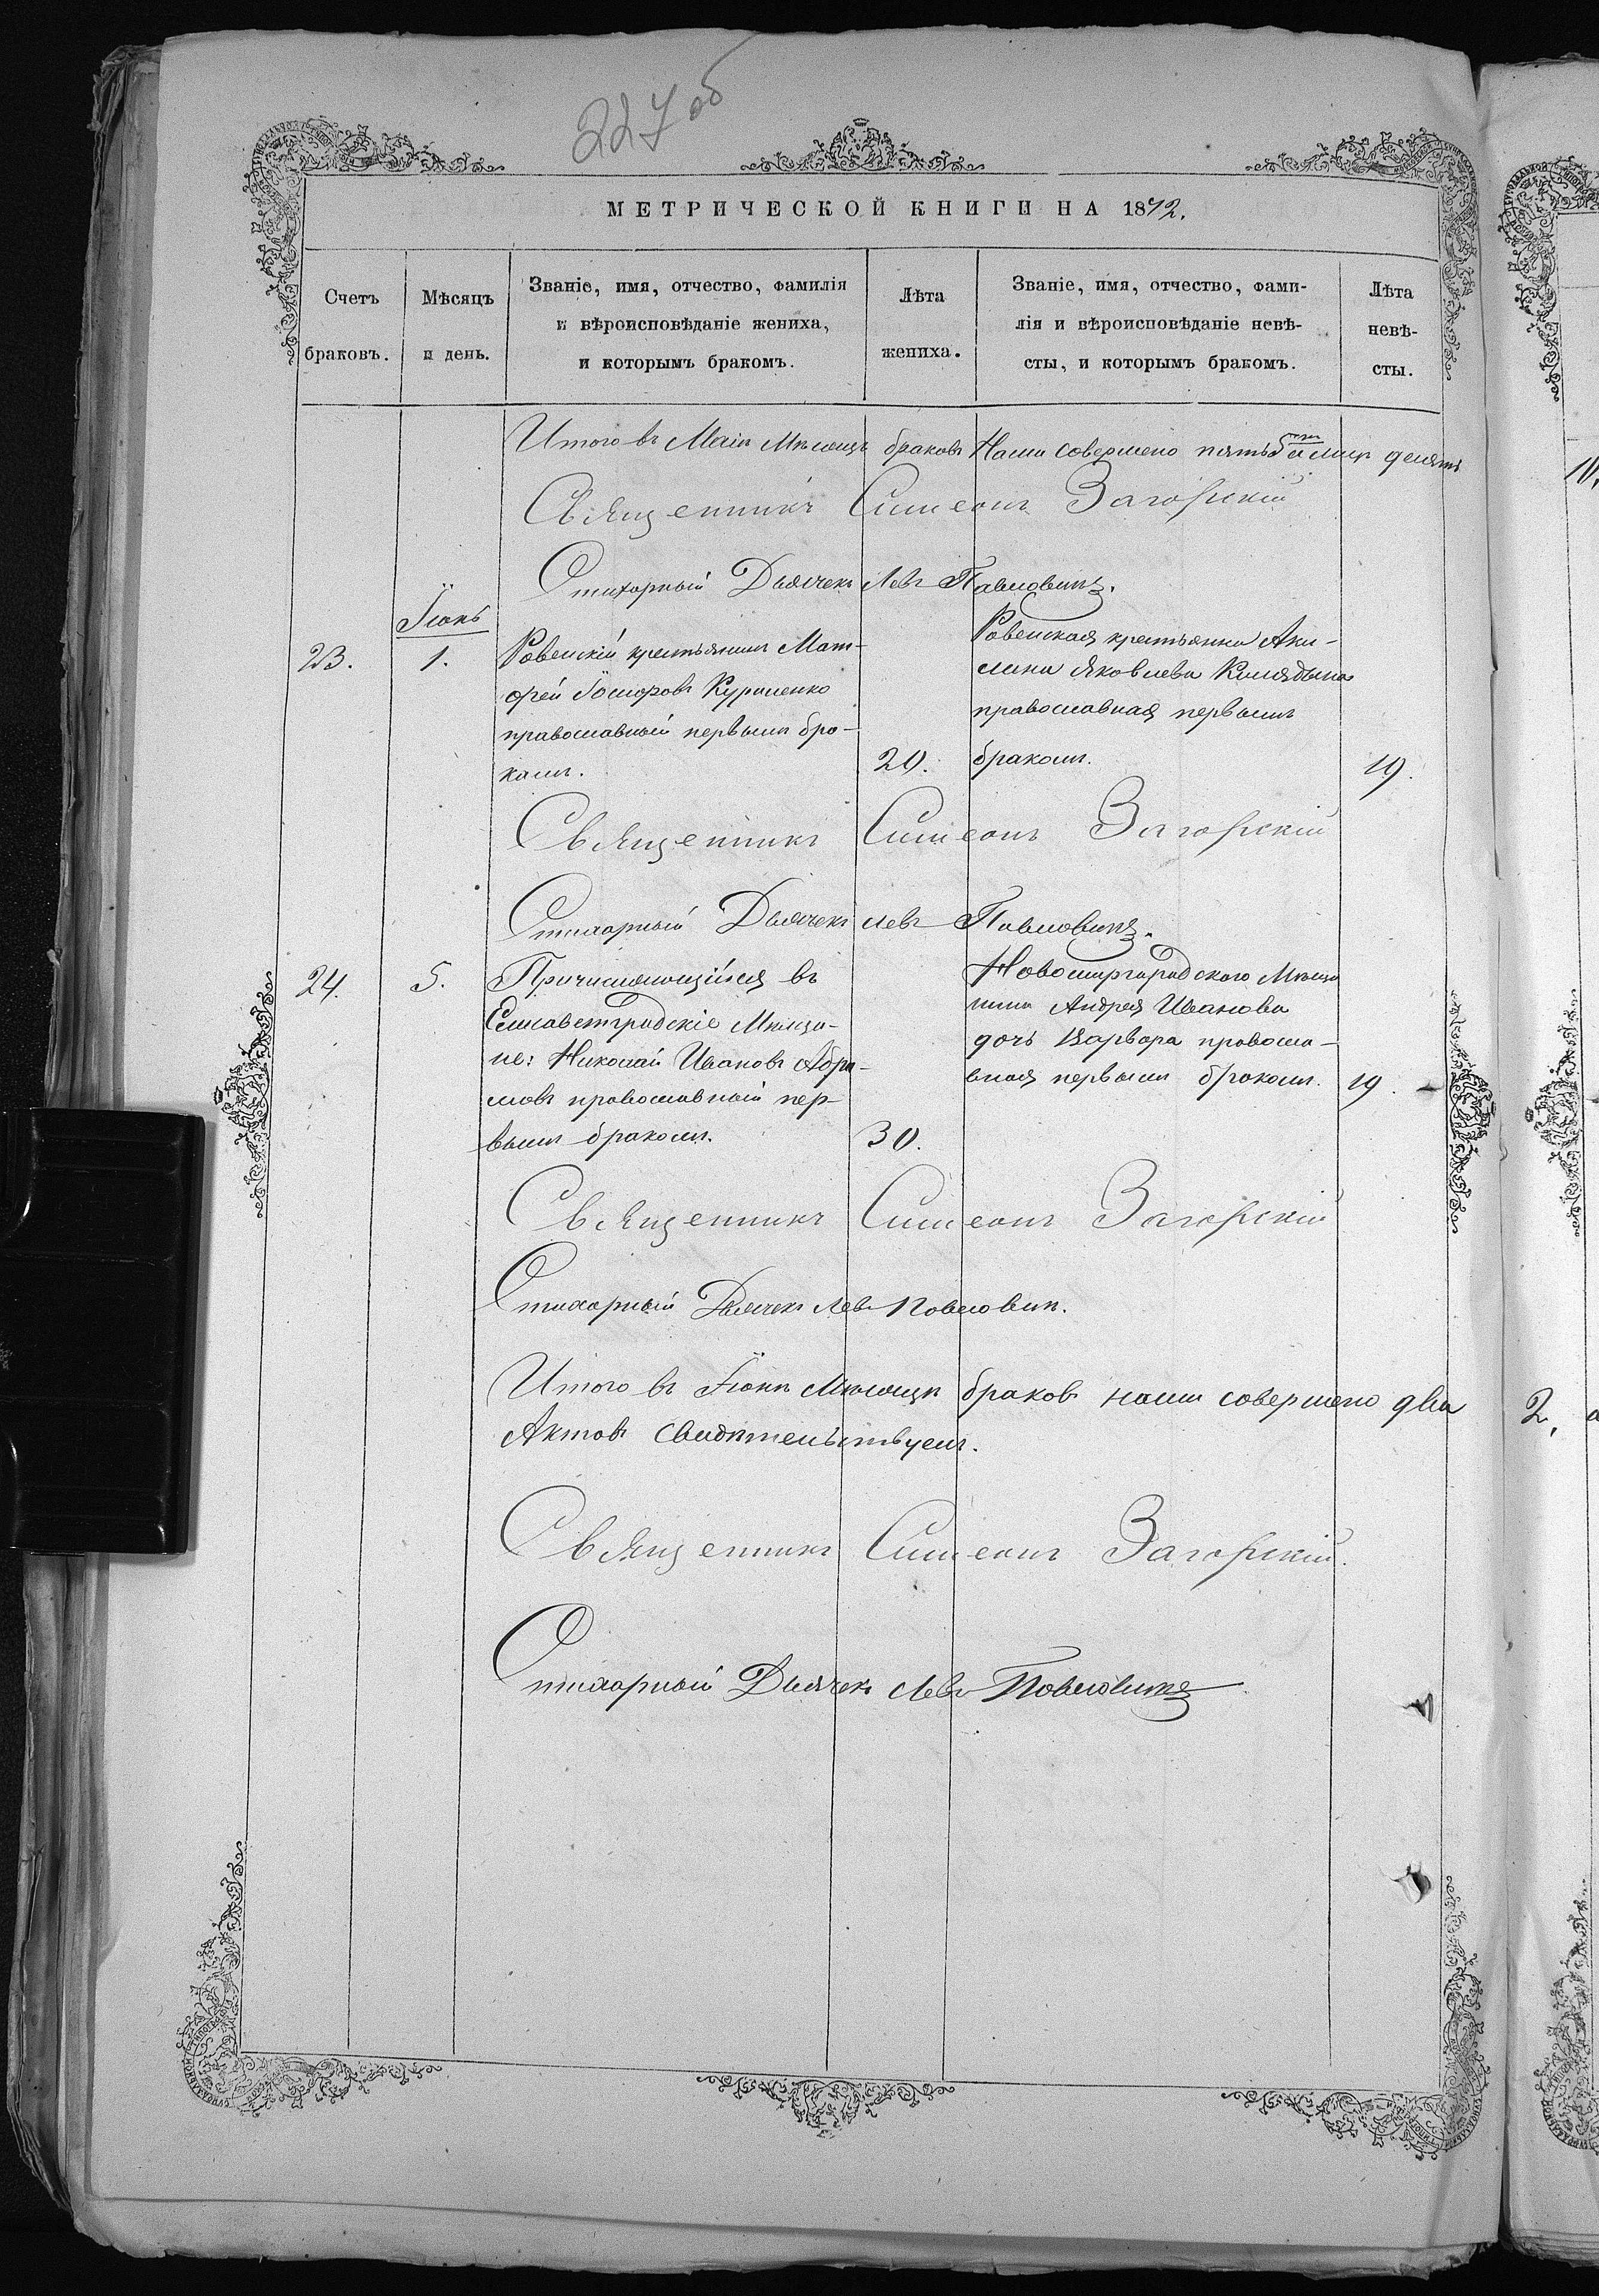 227 об
МЕТРИЧЕСКОЙ КНИГИ НА 1872.
Счетъ браковъ.
Мѣсяцъ и день.
Званіе, имя, отчество, фамилія
и вѣроисповѣданіе жениха,
и которымъ бракомъ.
Лѣта жениха.
Званіе, имя, отчество, фами-
лія и вѣроисповѣданіе невѣ-
сты, и которымъ бракомъ.
Лѣта невѣ-
сты.
Итого въ Маіи Мѣсяцѣ браковъ Нами совершено пять
Священникъ Симеонъ Загорскій
Стихарный Дьячекъ Левъ Павловичъ.
Іюнь
23. 1.
Ровенскій крестьянинъ Мат-
фей Ѳоминъ Куриленко
православный первымъ бра-
комъ.
20.
Ровенская крестьянка Аки-
лина Яковлева
православная первымъ
бракомъ.
19.
Священникъ Симеонъ Загорскій
Стихарный Дьячекъ Левъ Павловичъ.
24. 5.
Причисляющійся въ
Елисаветградскіе Мѣща-
не: Николай Ивановъ Абра-
мовъ православный пер-
вымъ бракомъ.
30.
Новомиргородского Мѣща
нина Андрея Иванова
дочь Варвара правосла-
вная первымъ бракомъ.
19.
Священникъ Симеонъ Загорскій
Стихарный Дьячекъ Левъ Павловичъ.
Итого въ Іюнѣ Мѣсяцѣ браковъ нами совершено два
Актовъ свидѣтельствуемъ.
Священникъ Симеонъ Загорскій.
Стихарный Дьячекъ Левъ Павловичъ
2,